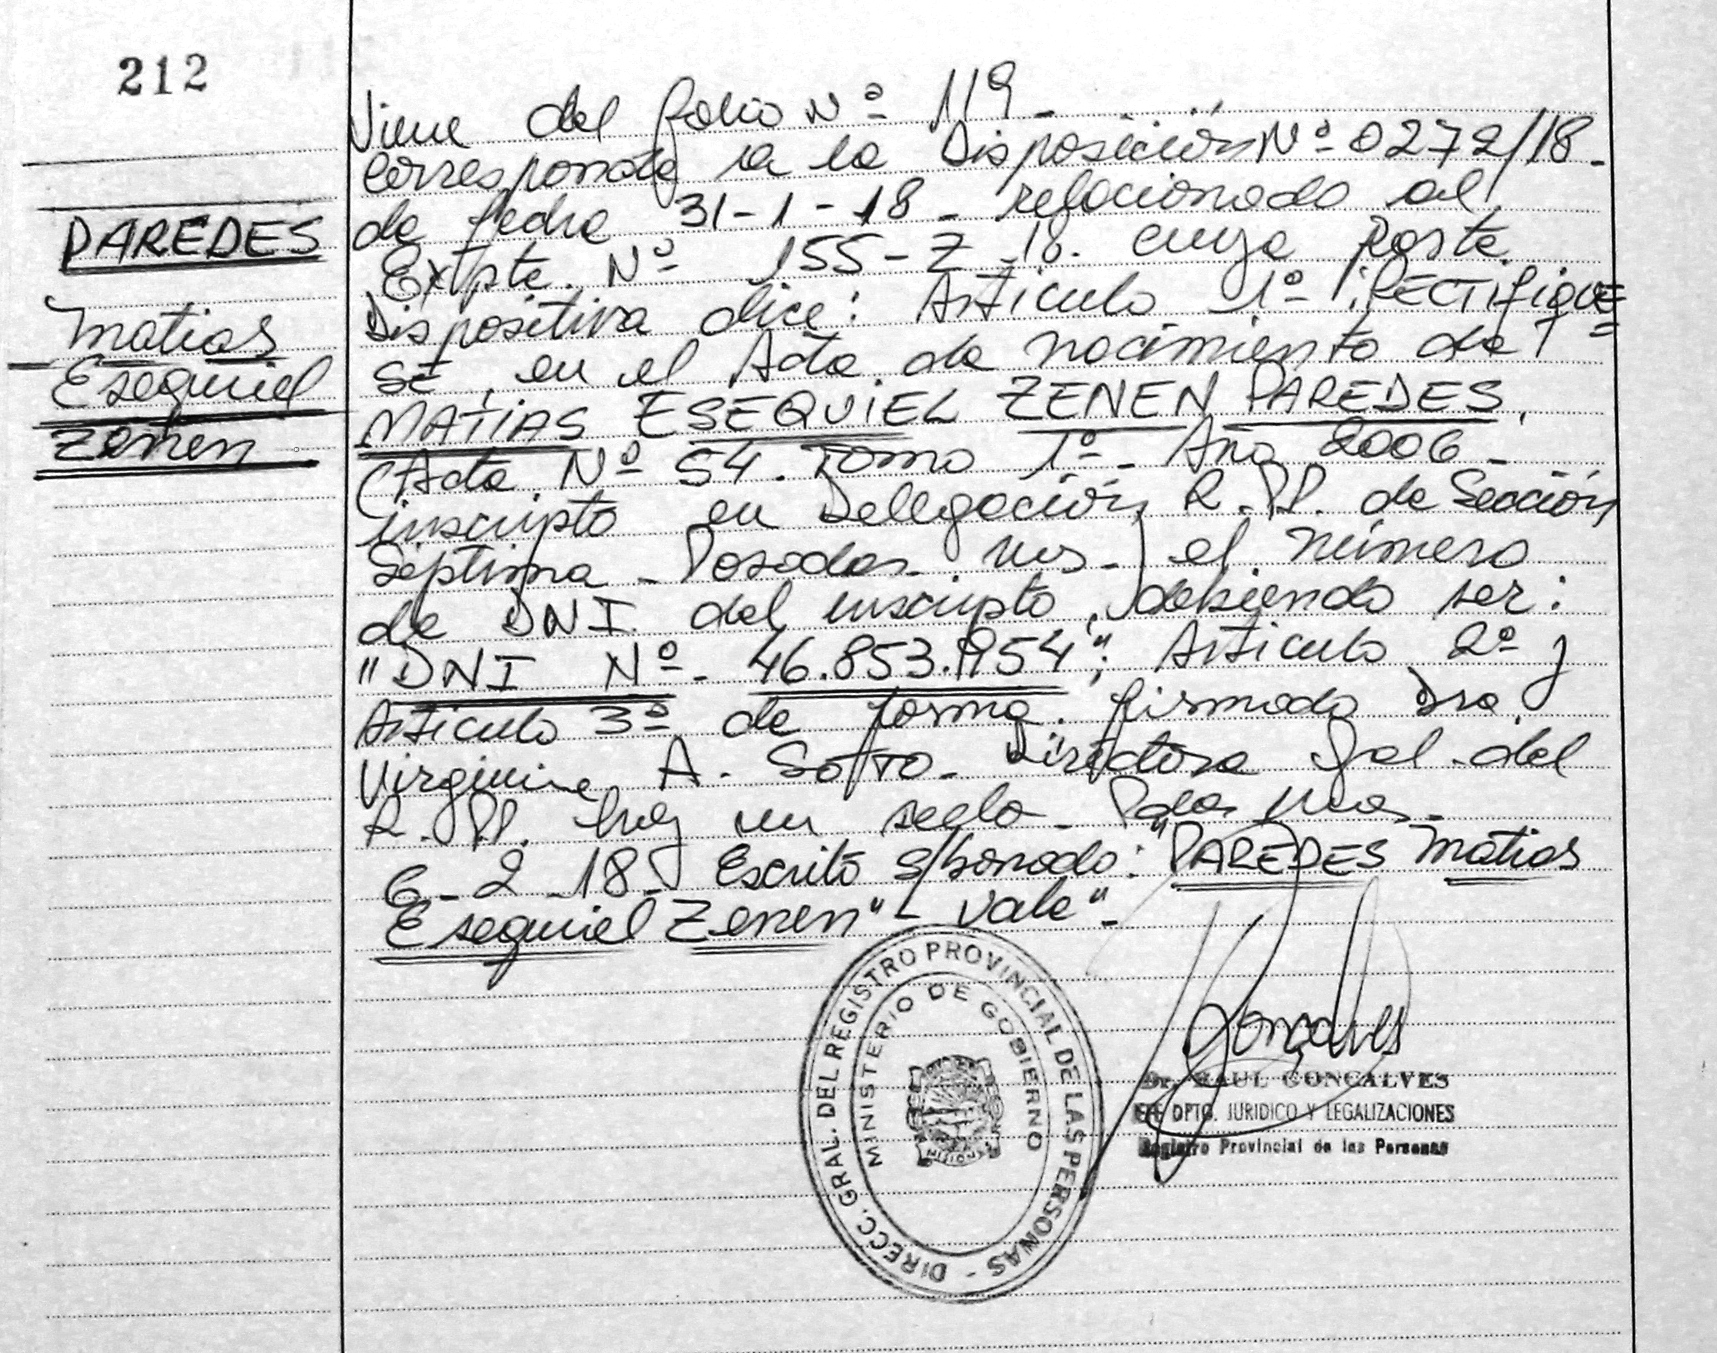 212
PAREDES
Matias
Esequiel
Zenen
Viene del folio Nº 119-
corresponde a la Disposición Nº 0272/18-
de fecha 31-1-18- relacionado al
Expte. Nº 155-Z-18. cuya parte
Dispositiva dice: Articulo 1º: RECTIFIQUE=
SE, en el Acta de nacimiento de
MATIAS ESEQUIEL ZENEN PAREDES,
(Acta Nº 54. Tomo 1º- Año 2006-
inscripto en Delegación R.PP. de Sección
Séptima - Posadas- Ms-) el número
de DNI del inscripto, debiendo ser:
"DNI Nº- 46.853.954"; Articulo 2º y
Articulo 3º de forma. firmado Dra.
Virginia A. Sotto- Directora Gral. del
R.PP. hay un sello- Pdas Mnes-
6-2-18- Escrito s/borrado: "PAREDES Matias
Esequiel Zenen" - Vale"-
DIRECC. GRAL. DEL REGISTRO PROVINCIAL DE LAS PERSONAS -
MINISTERIO DE GOBIERNO
MISIONES
Goncalves
Dr. RAUL GONCALVES
JEFE DPTO. JURIDICO Y LEGALIZACIONES
Registro Provincial de las Personas